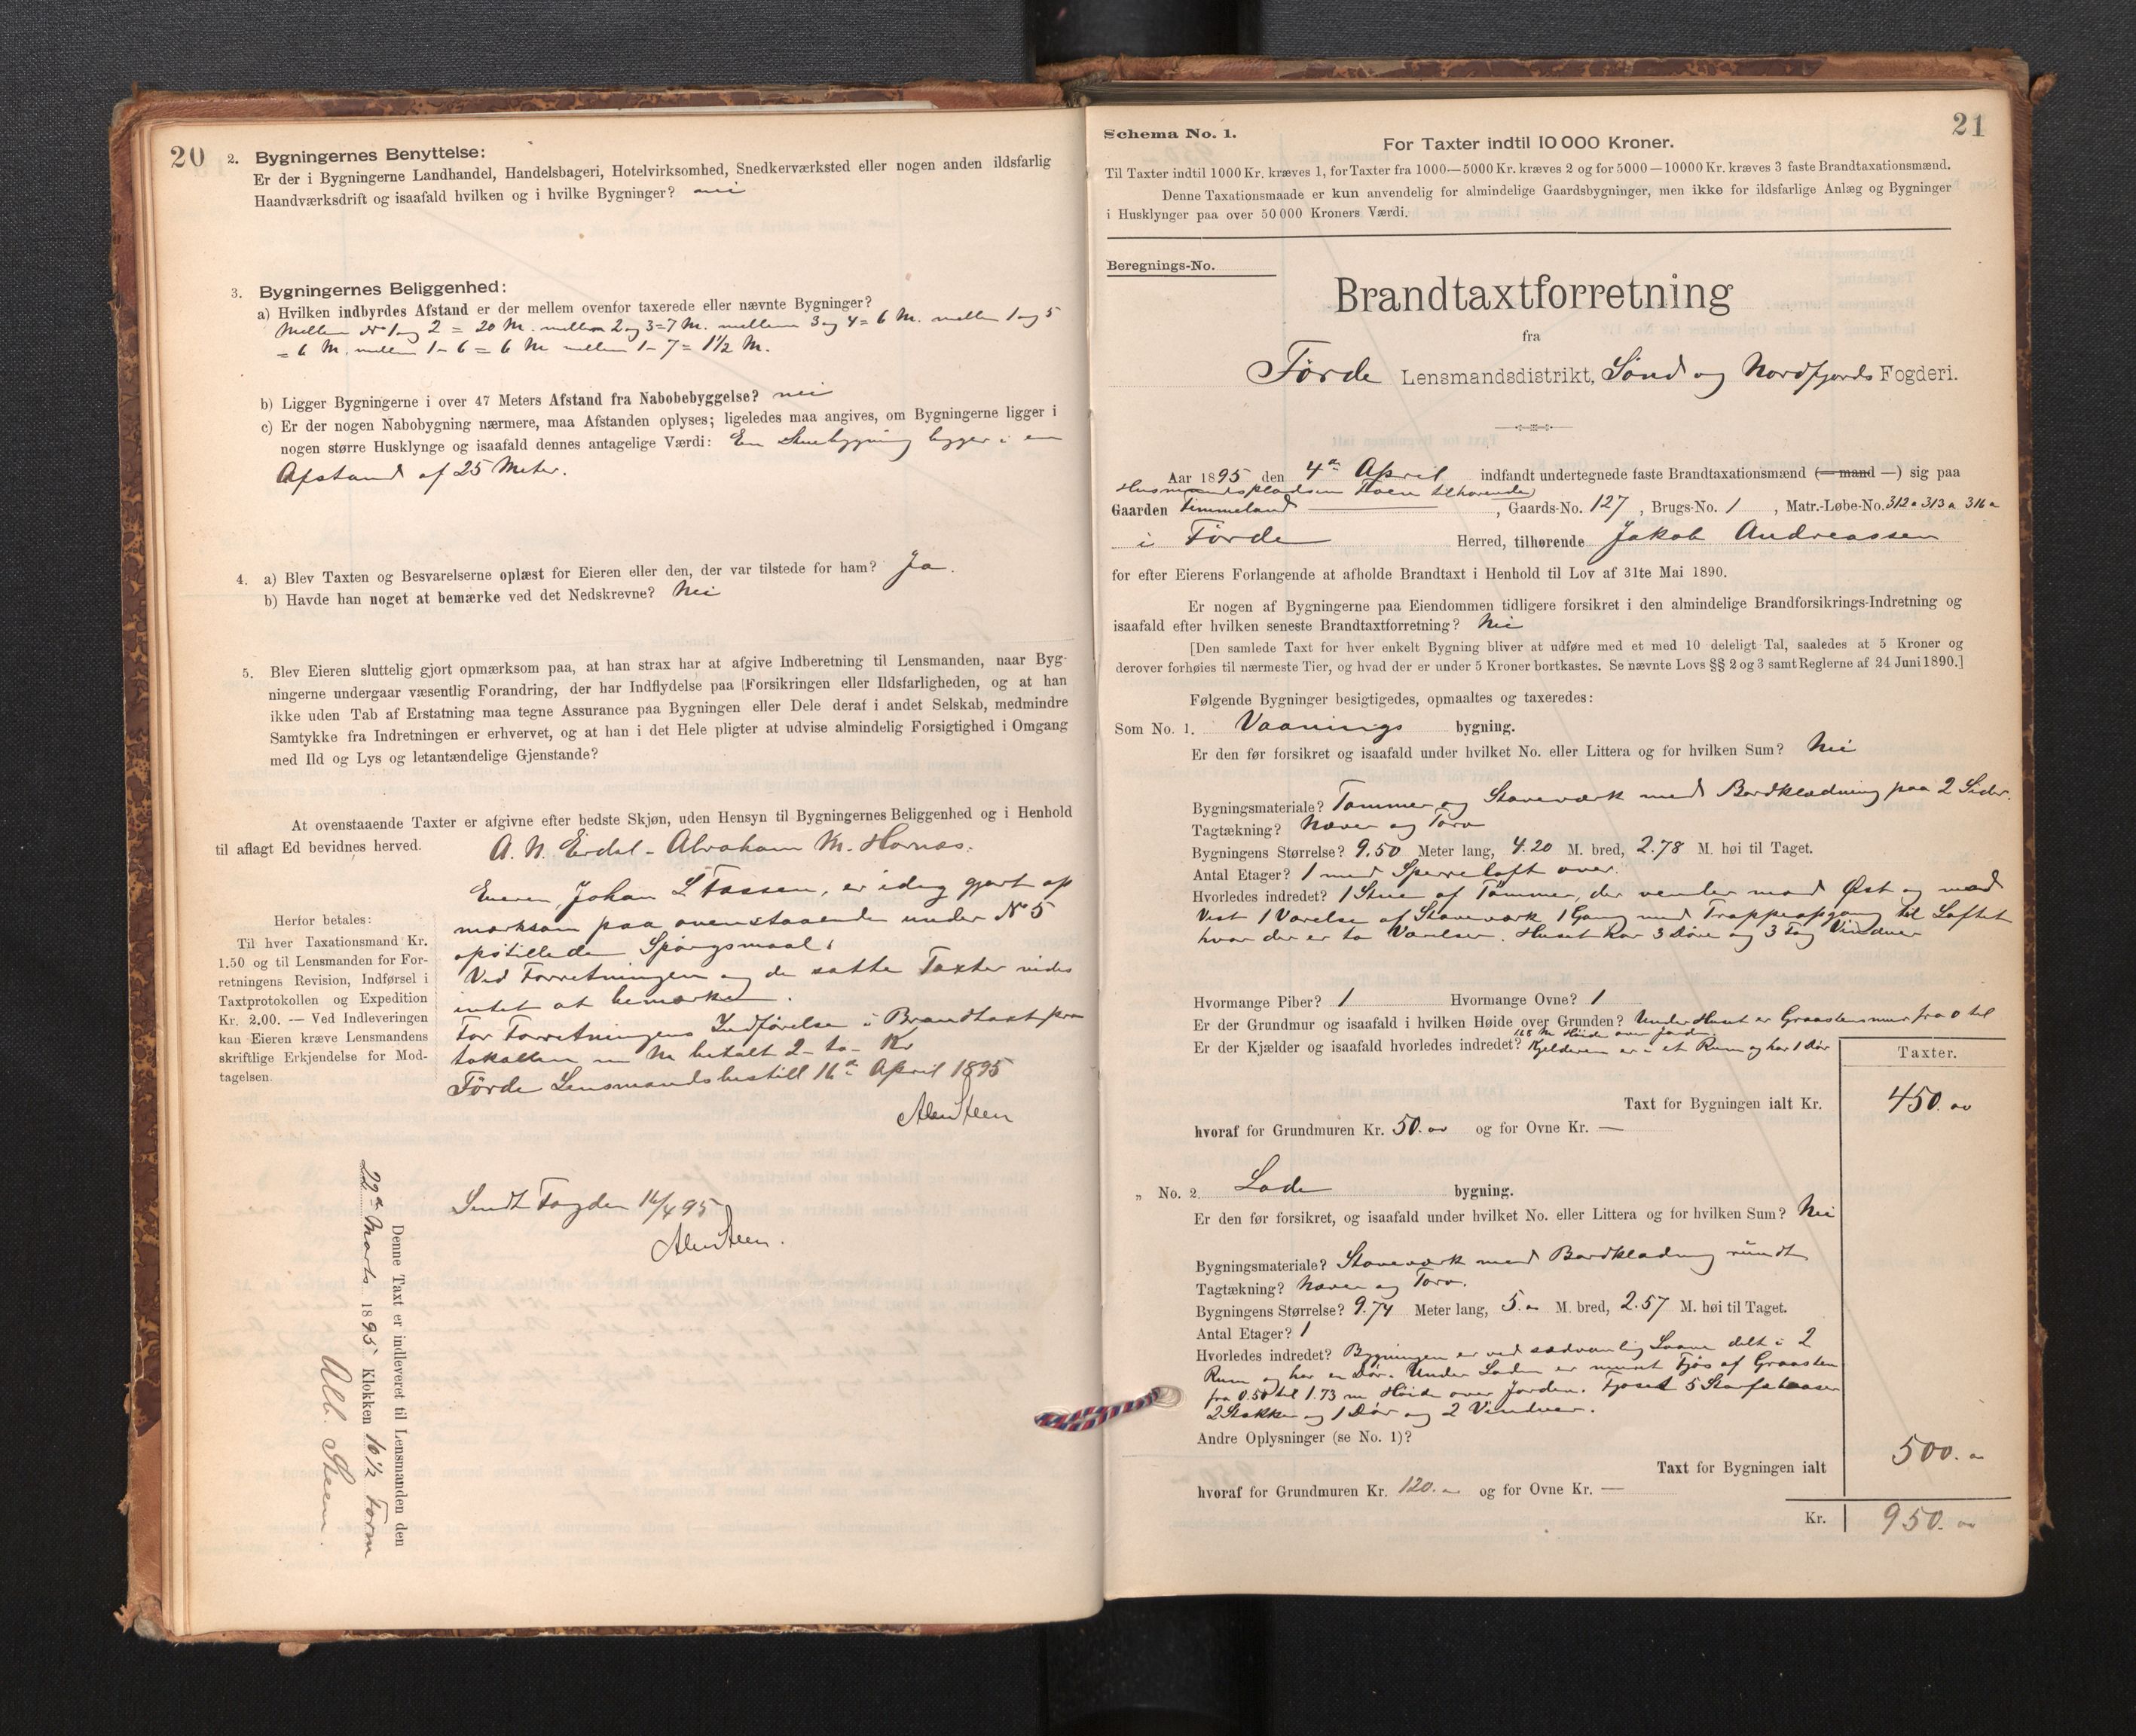 20
2. Bygningernes Benyttelse:
Er der i Bygningerne Landhandel, Handelsbageri, Hotelvirksomhed, Snedkerværksted eller nogen anden ildsfarlig
Haandværksdrift og isaafald hvilken og i hvilke Bygninger? nei
3. Bygningernes Beliggenhed:
a) Hvilken indbyrdes Afstand er der mellem ovenfor taxerede eller nævnte Bygninger?
Mellem No 1 og 2 = 20 M. mellem 2 og 3 = 7 M. mellem 3 og 4 = 6 M. mellem 1 og 5
= 6 M. mellem 1 - 6 = 6 M mellem 1 - 7 = 1½ M.
b) Ligger Bygningerne i over 47 Meters Afstand fra Nabobebyggelse? nei
c) Er der nogen Nabobygning nærmere, maa Afstanden oplyses; ligeledes maa angives, om Bygningerne ligger i
nogen større Husklynge og isaafald dennes antagelige Værdi: En Stuebygning ligger i en
Afstand af 25 Meter.
4. a) Blev Taxten og Besvarelserne oplæst for Eieren eller den, der var tilstede for ham? Ja.
b) Havde han noget at bemærke ved det Nedskrevne? Nei
5. Blev Eieren sluttelig gjort opmærksom paa, at han strax har at afgive Indberetning til Lensmanden, naar Byg-
ningerne undergaar væsentlig Forandring, der har Indflydelse paa Forsikringen eller Ildsfarligheden, og at han
ikke uden Tab af Erstatning maa tegne Assurance paa Bygningen eller Dele deraf i andet Selskab, medmindre
Samtykke fra Indretningen er erhvervet, og at han i det Hele pligter at udvise almindelig Forsigtighed i Omgang
med Ild og Lys og letantændelige Gjenstande?
At ovenstaaende Taxter er afgivne efter bedste Skjøn, uden Hensyn til Bygningernes Beliggenhed og i Henhold
til aflagt Ed bevidnes herved. A. N. Erdal - Abraham M. Hornæs.
Eieren, Johan L Fossen, er idag gjort op
mærksom paa ovenstaaende under No 5
opstillede Spørgsmaal.
Ved Forretningen og de satte Taxter vides
intet at bemærke.
For Forretningens Indførelse i Brandtaxtpro
tokollen m M betalt 2 - to - Kr
Førde Lensmandsbestill 16de April 1895
Alb Steen
Herfor betales:
Til hver Taxationsmand Kr.
1.50 og til Lensmanden for For-
retningens Revision, Indførsel i
Taxtprotokollen og Expedition
Kr. 2.00. — Ved Indleveringen
kan Eieren kræve Lensmandens
skriftlige Erkjendelse for Mod-
tagelsen.
Sendt Fogden 16/4 95
Alb Steen.
Denne Taxt er indleveret til Lensmanden den
29de Marts 1895 Klokken 10½ Form
Alb. Steen.
21
Schema No. 1.
For Taxter indtil 10 000 Kroner.
Til Taxter indtil 1000 Kr. kræves 1, for Taxter fra 1000—5000 Kr. kræves 2 og for 5000—10000 Kr. kræves 3 faste Brandtaxationsmænd.
Denne Taxationsmaade er kun anvendelig for almindelige Gaardsbygninger, men ikke for ildsfarlige Anlæg og Bygninger
i Husklynger paa over 50 000 Kroners Værdi.
Beregnings-No.
Brandtaxtforretning
fra
Førde Lensmandsdistrikt, Sønd og Nordfjords Fogderi.
Aar 1895 den 4de April indfandt undertegnede faste Brandtaxationsmænd (— mand —) sig paa
Husmandspladsen Hoen tilhørende
Gaarden Timmeland, Gaards-No. 127, Brugs-No. 1, Matr.-Løbe-No. 312a 313a 316a
i Førde Herred, tilhørende Jakob Andreassen
for efter Eierens Forlangende at afholde Brandtaxt i Henhold til Lov af 31te Mai 1890.
Er nogen af Bygningerne paa Eiendommen tidligere forsikret i den almindelige Brandforsikrings-Indretning og
isaafald efter hvilken seneste Brandtaxtforretning? Nei
[Den samlede Taxt for hver enkelt Bygning bliver at udføre med et med 10 deleligt Tal, saaledes at 5 Kroner og
derover forhøies til nærmeste Tier, og hvad der er under 5 Kroner bortkastes. Se nævnte Lovs §§ 2 og 3 samt Reglerne af 24 Juni 1890.]
Følgende Bygninger besigtigedes, opmaaltes og taxeredes:
Som No. 1. Vaanings bygning.
Er den før forsikret og isaafald under hvilket No. eller Littera og for hvilken Sum? Nei
Bygningsmateriale? Tømmer og Staveværk med Bordklædning paa 2 Sider.
Tagtækning? Næver og Torv
Bygningens Størrelse? 9.50 Meter lang, 4.20 M. bred, 2.78 M. høi til Taget.
Antal Etager? 1 med Sperreloft over.
Hvorledes indredet? 1 Stue af Tømmer, der vender mod Øst og mod
Vest 1 Værelse af Staveværk 1 Gang med Trappeopgang til Loftet
hvor der er to Værelser. Huset har 3 Døre og 3 Fag Vinduer
Hvormange Piber? 1 Hvormange Ovne? 1
Er der Grundmur og isaafald i hvilken Høide over Grunden? Under Huset er Graastensmur fra 0 til
1.68 M Høide over Jorden.
Er der Kjælder og isaafald hvorledes indredet? Kjelderen er i et Rum og har 1 Dør
Taxter.
Taxt for Bygningen ialt Kr. 450.00
hvoraf for Grundmuren Kr. 50.00 og for Ovne Kr. —
„ No. 2. Lade bygning.
Er den før forsikret, og isaafald under hvilket No. eller Littera og for hvilken Sum? Nei
Bygningsmateriale? Staveværk med Bordklædning rundt
Tagtækning? Næver og Torv.
Bygningens Størrelse? 9.74 Meter lang, 5.00 M. bred, 2.57 M. høi til Taget.
Antal Etager? 1
Hvorledes indredet? Bygningen er ved sædvanlig Laave delt i 2
Rum og har en Dør. Under Laden er muret Fjøs af Graasten
fra 0.50 til 1.73 m Høide over Jorden. Fjøset 5 Storfebaaser
2 Stakker og 1 Dør og 2 Vinduer.
Andre Oplysninger (se No. 1)?
Taxt for Bygningen ialt 500.00
hvoraf for Grundmuren Kr. 120.00 og for Ovne Kr. —
Kr. 950.00